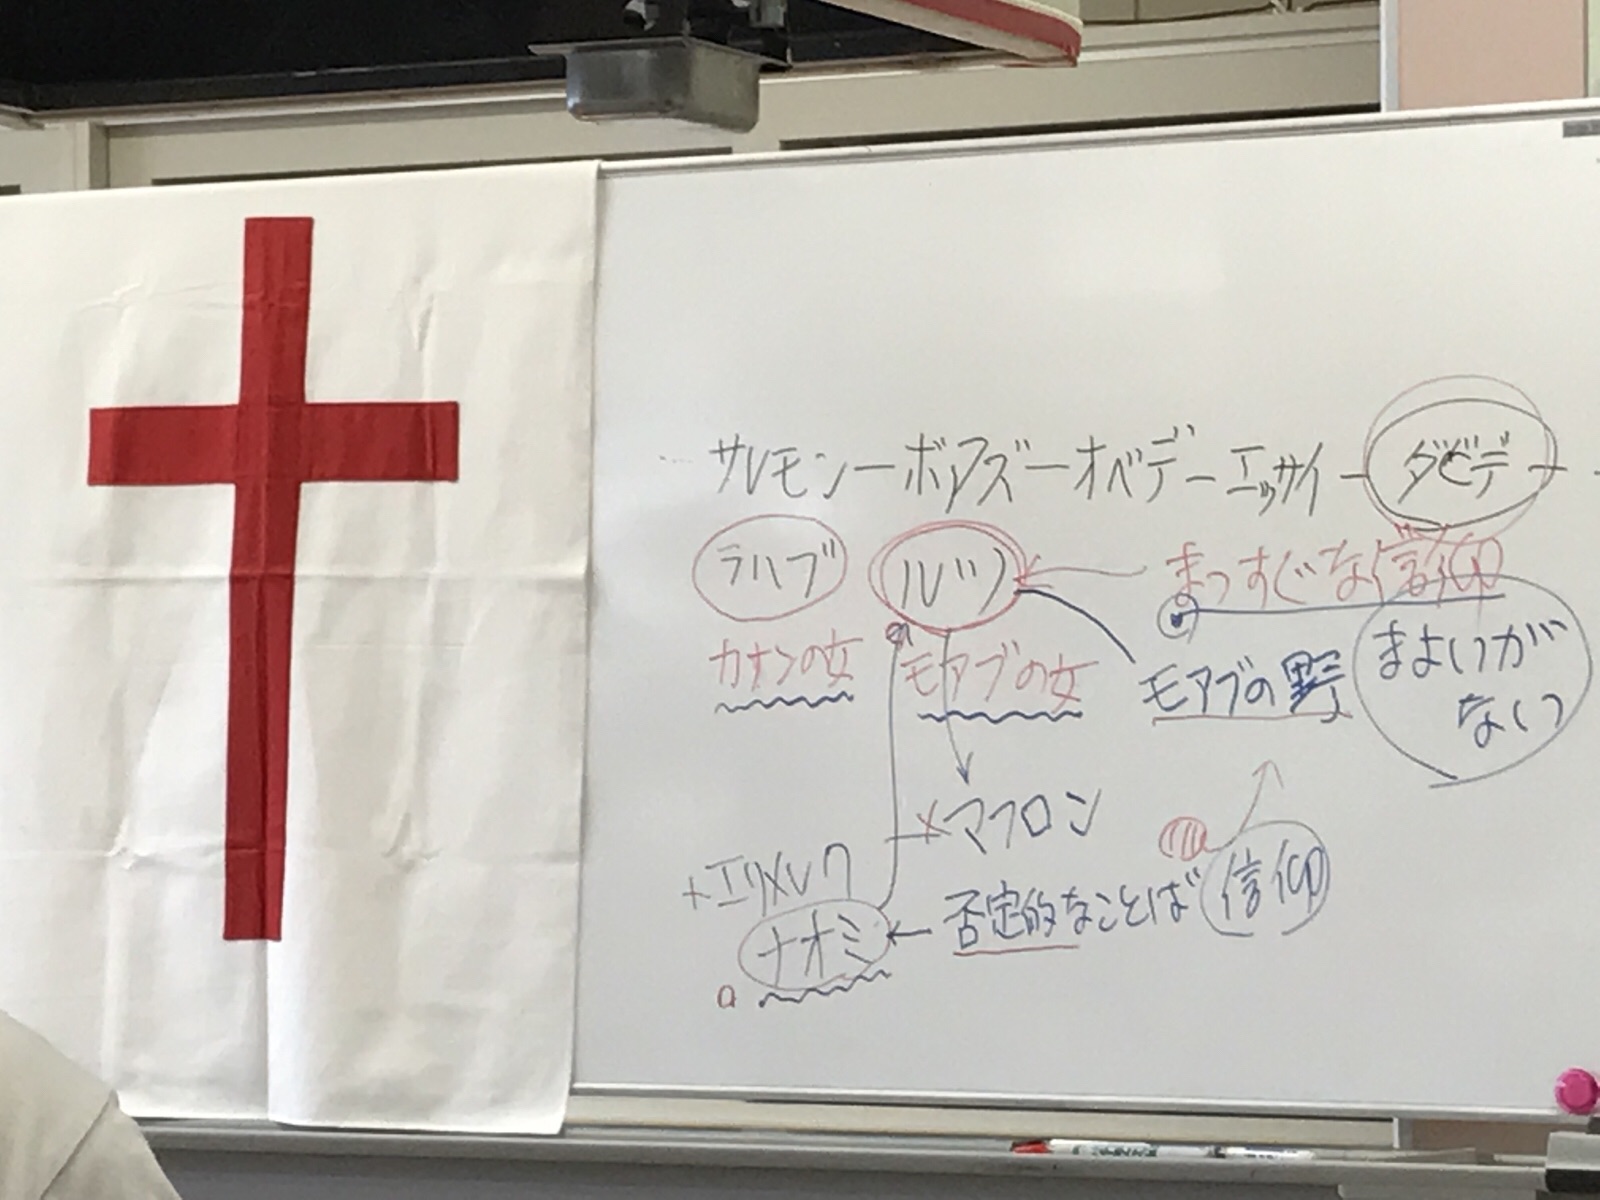 サルモン－ボアズ－オベデ－エッサイ－ダビデ－
ラハブ ルツ ← まっすぐな信仰
カナンの女 モアブの女 モアブの野 まよいが
ない
×マフロン
+エリメレク
ナオミ ← 否定的なことば 信仰
a